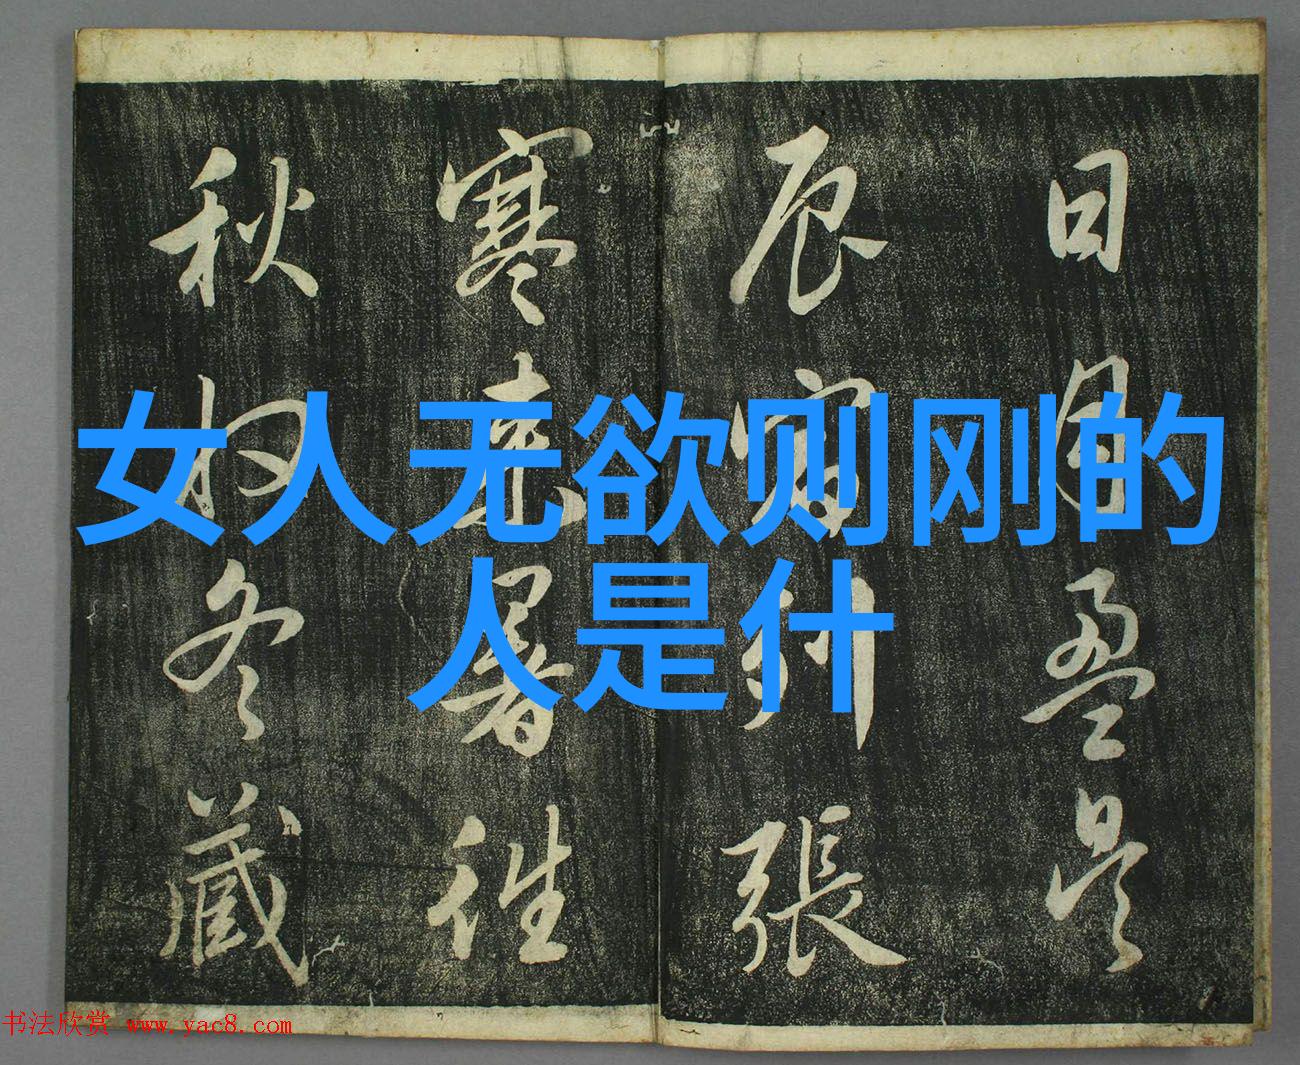 日月盈昃
辰宿列張
寒來暑往
秋收冬藏
女人无欲则刚的
人是什
书法欣赏 www.yac8.com